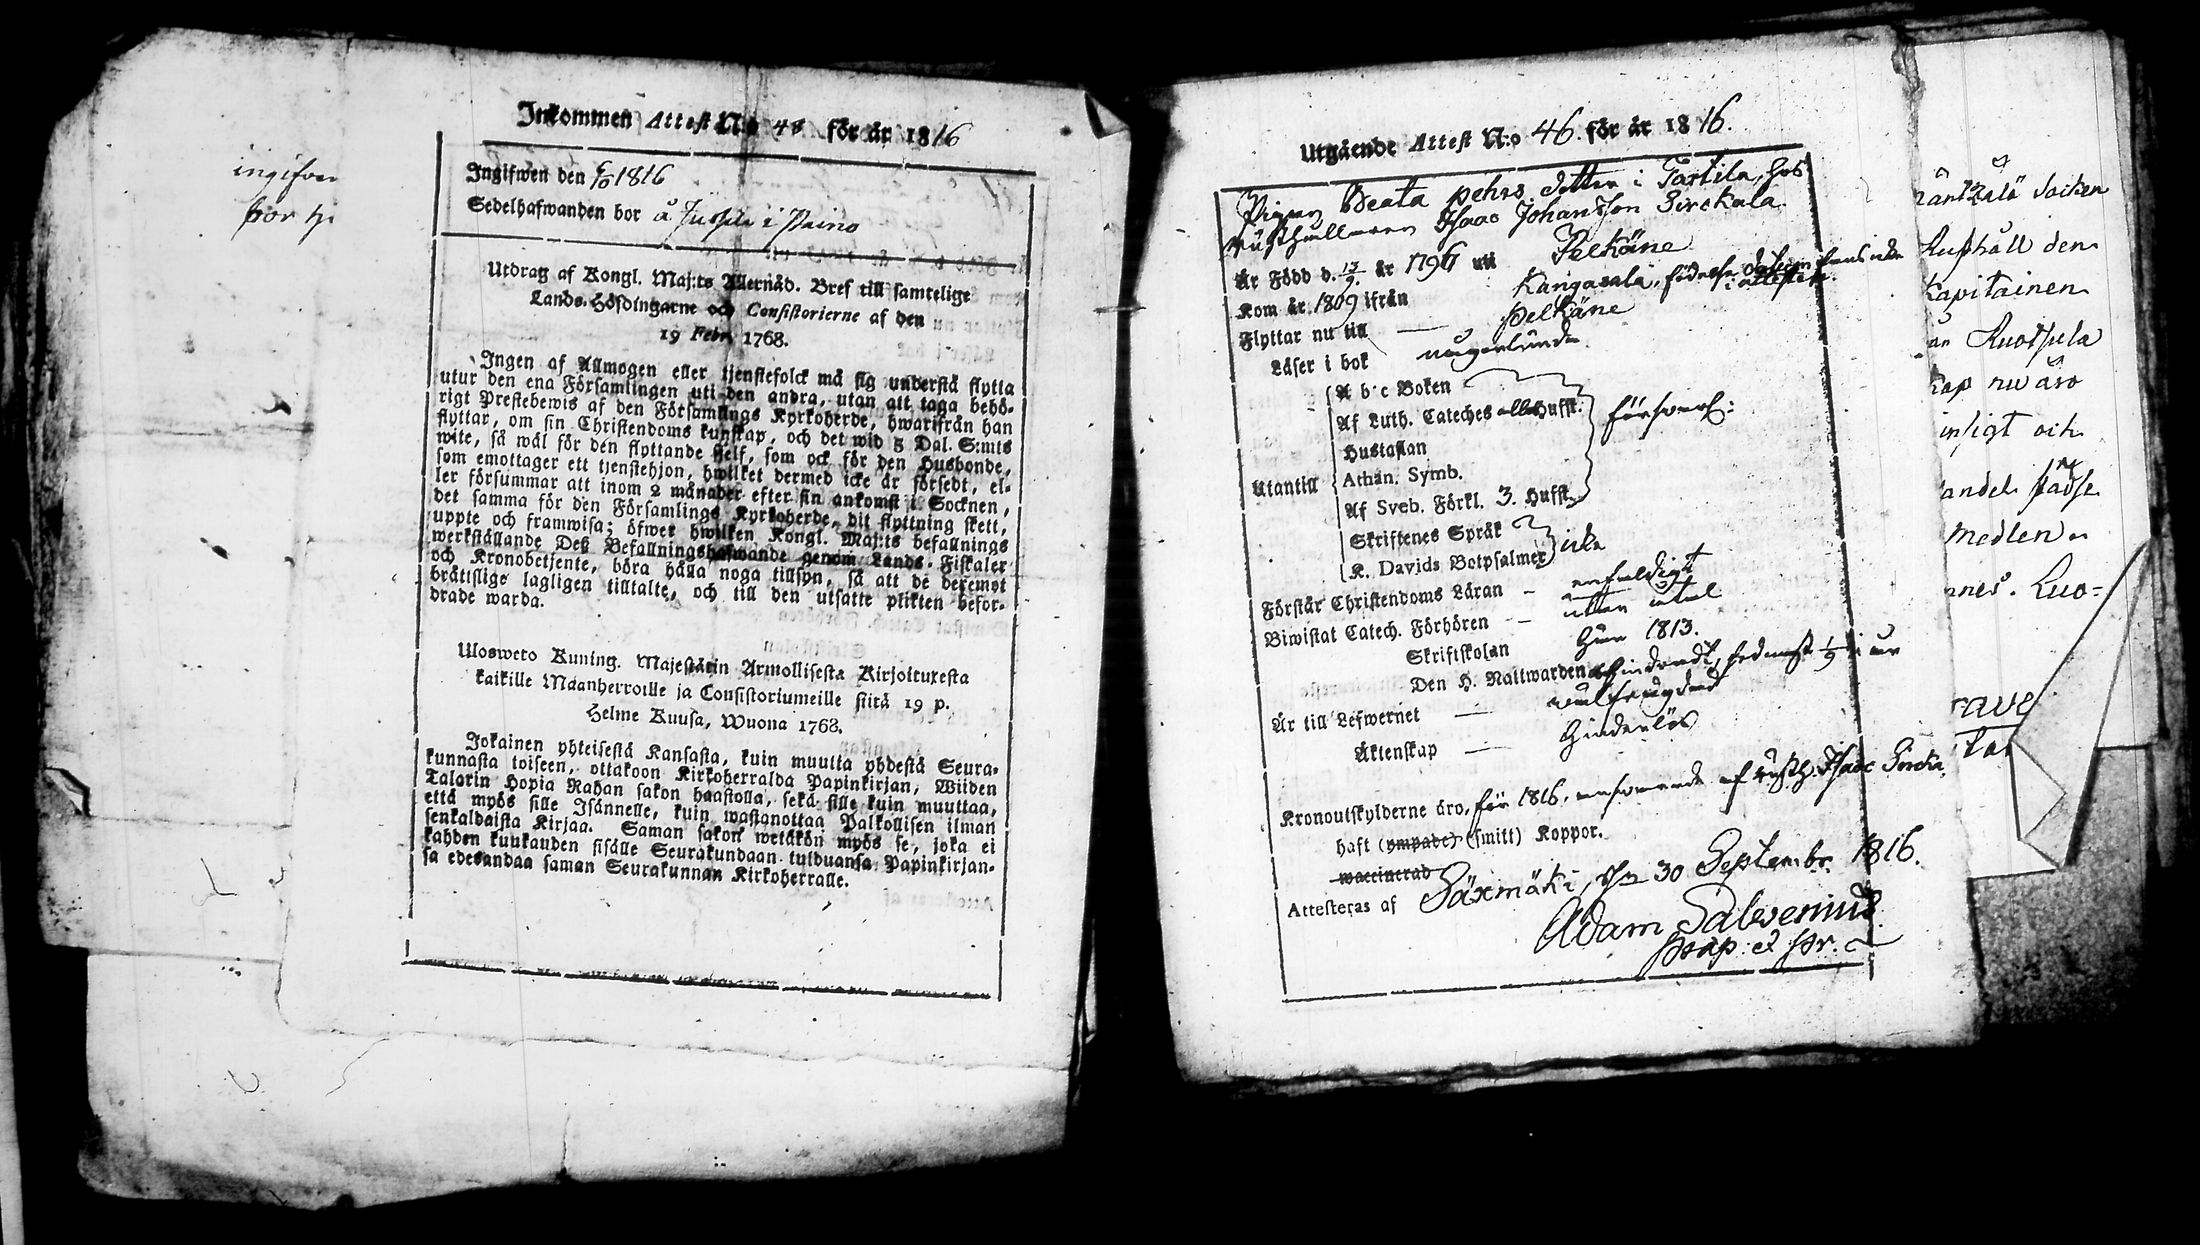 ingifven
bor h
Inkommen Attest N:o 48 för år 1816
Ingifwen den 6/10 1816
Sedelhafwanden bor å i Paino
Utdrag af Kongl. Maj:ts Allernåd. Bref till samtelige
Lands-Höfdingarne och Consistorierne af den
19 Febr. 1768.
Ingen af Allmogen eller tjenstefolck må sig understå flytta
utur den ena Församlingen uti den andra, utan att taga behö-
rigt Prestebewis af den Församlings Kyrkoherde, hwarifrån han
flyttar, om sin Christendoms kunskap, och det wid 5 Dal. S:mts
wite, så wäl för den flyttande sjelf, som ock för den Husbonde,
som emottager ett tjenstehjon, hwilket dermed icke är försedt, el-
ler försummar att inom 2 månader efter sin ankomst i Socknen,
det samma för den Församlings Kyrkoherde, dit flyttning skett,
uppte och framwisa; öfwer hwilken Kongl. Maj:ts befallnings
werkställande Deß Befallningshafwande genom Lands-Fiskaler
och Kronobetjente, böra hålla noga tillsyn, så att de deremot
brätislige lagligen tilltalte, och till den utsatte plikten befor-
drade warda.
Ulosweto Kuning. Majestätin Armollisesta Kirjoituxesta
kaikille Maanherroille ja Consistoriumeille siitä 19 p.
Helme Kuusa, Wuona 1768.
Jokainen yhteisestä Kansasta, kuin muutta yhdestä Seura-
kunnasta toiseen, ottakoon Kirkoherralda Papinkirjan, Wiiden
Talarin Hopia Rahan sakon haastolla, sekä sille kuin muuttaa,
että myös sille Isännelle, kuin wastanottaa Palkollisen ilman
senkaldaista Kirjaa. Saman sakon wetäkön myös se, joka ei
kahden kuukauden sisälle Seurakundaan tulduansa Papinkirjan-
sa edesandaa saman Seurakunnan Kirkoherralle.
Utgående Attest N:o 46. för år 1816.
Pigan Beata Pehrs dotter i Tarttila, hos
rusthållaren Isaac Johansson Sirckala
Är Född d. 13/9. år 1796 uti Pelkäne
Kom år 1809 ifrån Kangasala, födelse datum fans icke
i attesten.
Flyttar nu till — Pelkäne
Läser i bok någorlunda
Utantill
A b c Boken
Af Luth. Cateches alla Hufst.
Hustaflan
Athan. Symb.
Af Sveb. Förkl. 3. Hufst.
försvarl:
Skriftenes Språk
K. Davids Botpsalmer
icke
Förstår Christendoms Läran – enfaldigt
Biwistat Catech. Förhören – utan
Skriftskolan 1813.
Den H. Nattwarden ohindradt, sednast 1/9 i år
Är till Lefwernet — wälfrägdad
Äktenskap — hinderlös
Kronoutskylderne äro, för 1816, ansvarade af rusth. Isaac Sircka.
haft (ympade) (smitt) Koppor.
waccinerad
Attesteras af Säxmäki, d. 30 Septembr. 1816.
Adam Salvenius
præp. et pr.
socken
Rushåll den
Kapitainen
Ruotsila
nu äro
och
medlen
Ruo=